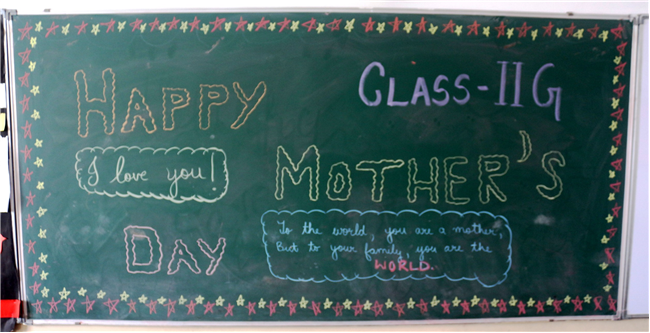 HAPPY
CLASS-II G
I love you!
MOTHER'S
DAY
To the world, you are a mother,
But to your family, you are the
WORLD.